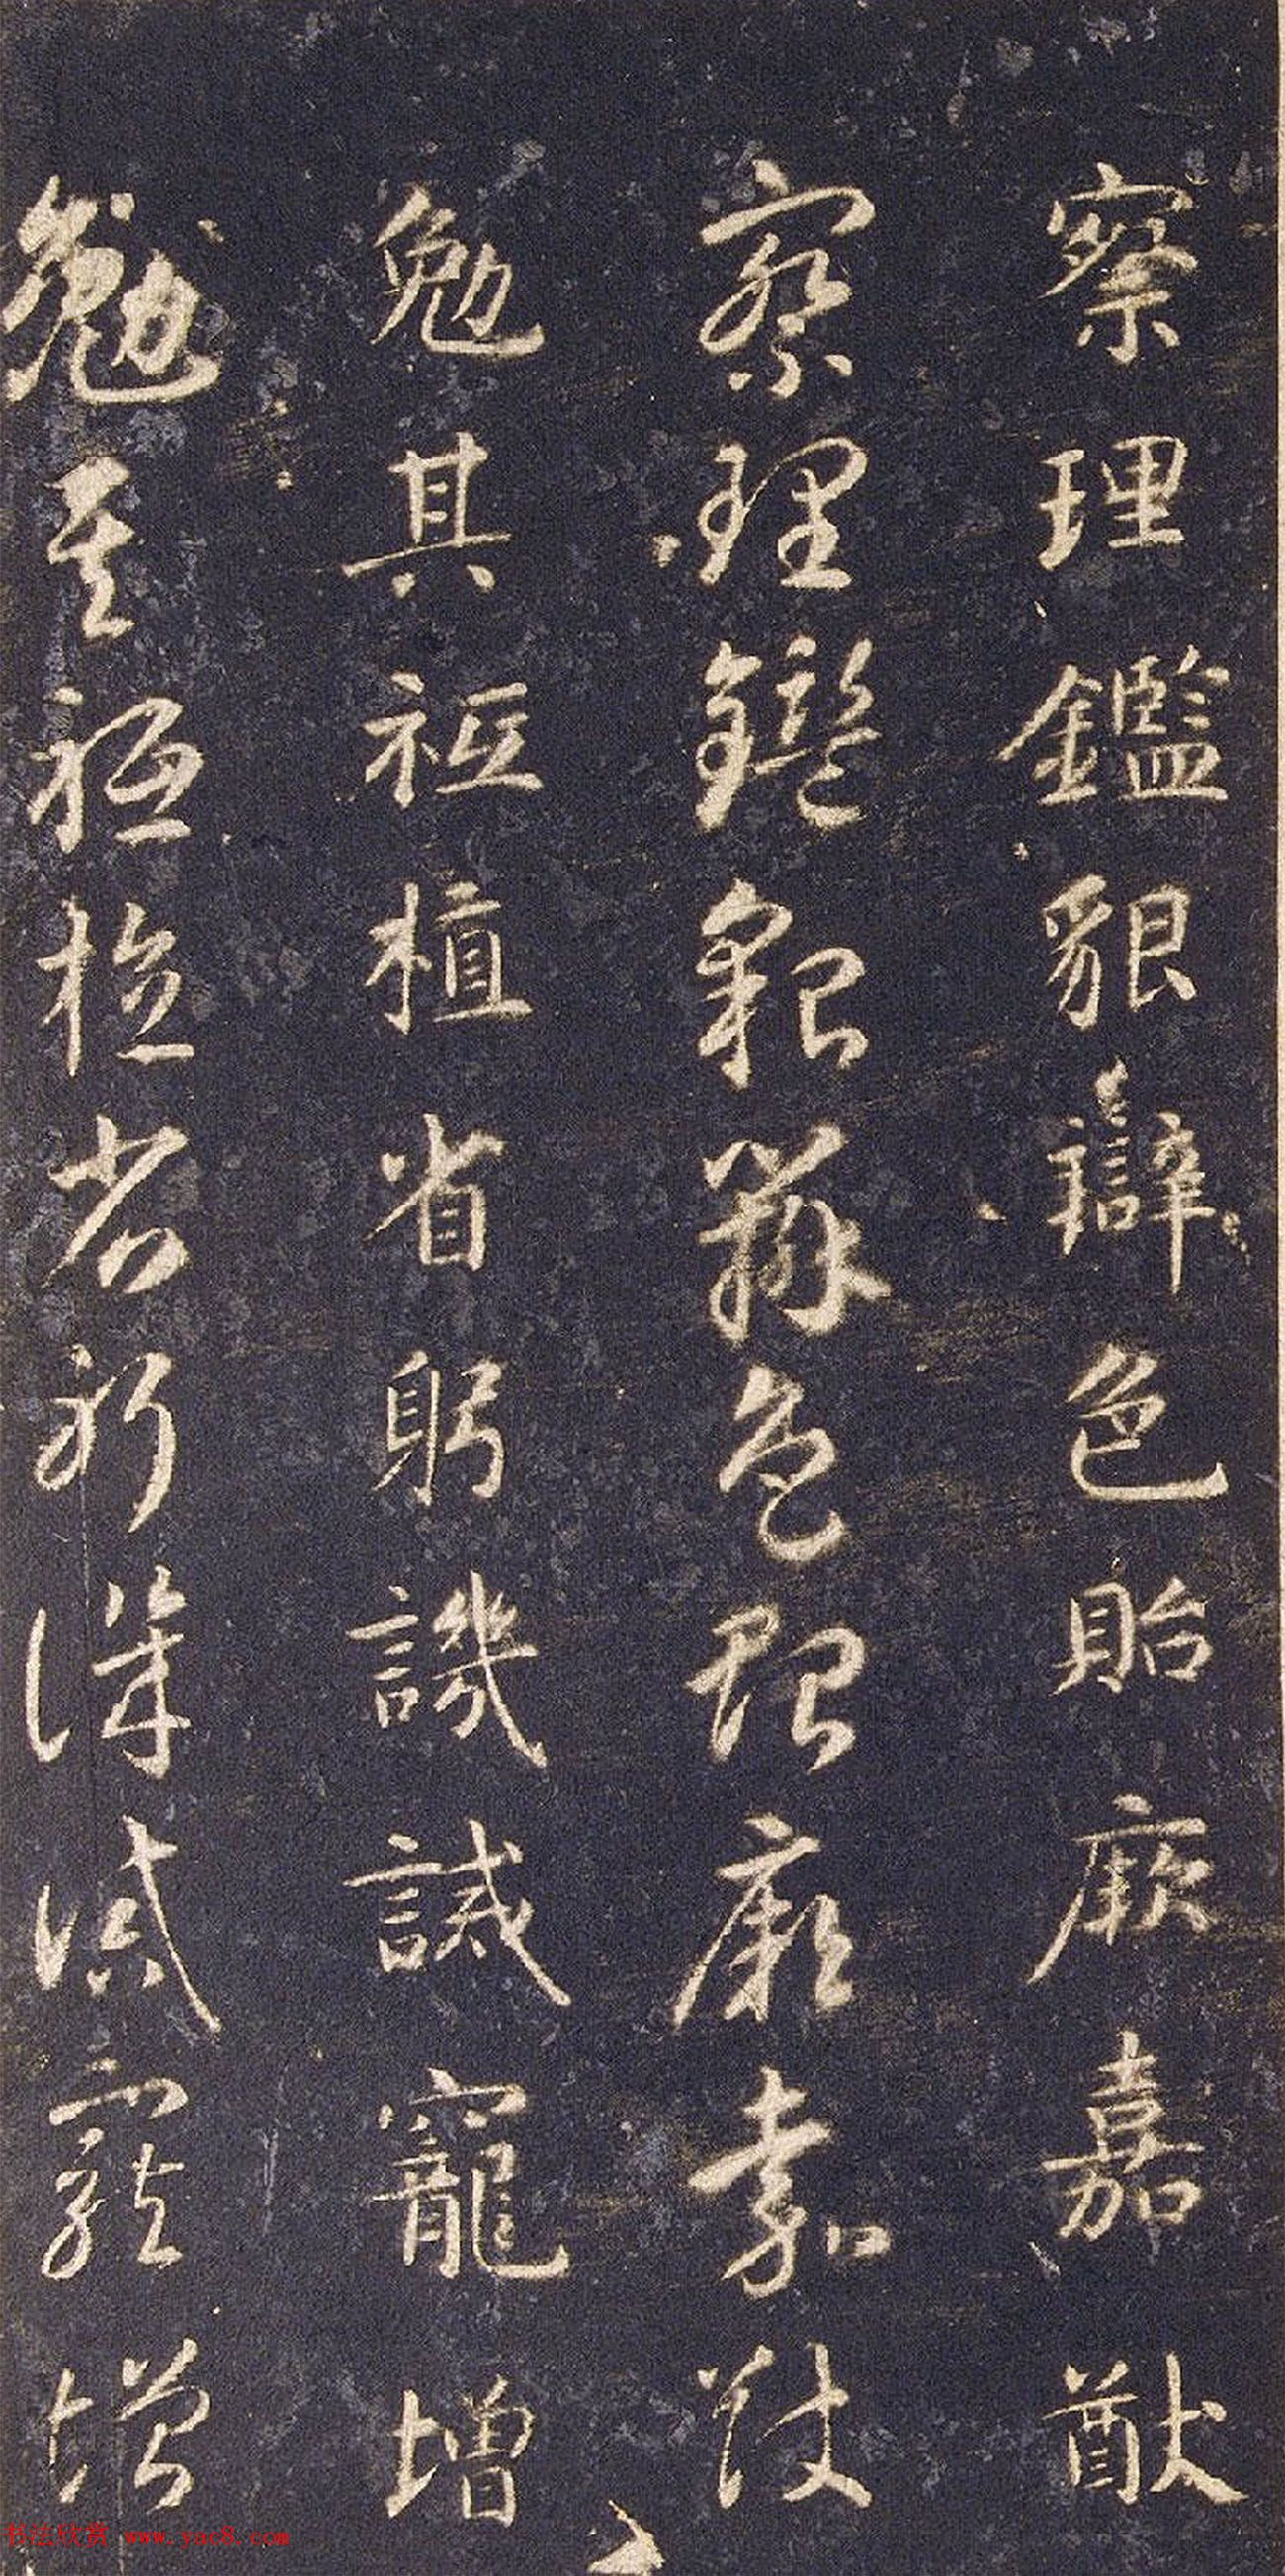 察理鑑貇辯色貽厥嘉猷
察理鑑貇辯色貽厥嘉猷
勉其祗植省躬譏誡寵增
勉其祗植省躬譏誡寵增
书法欣赏 www.yac8.com